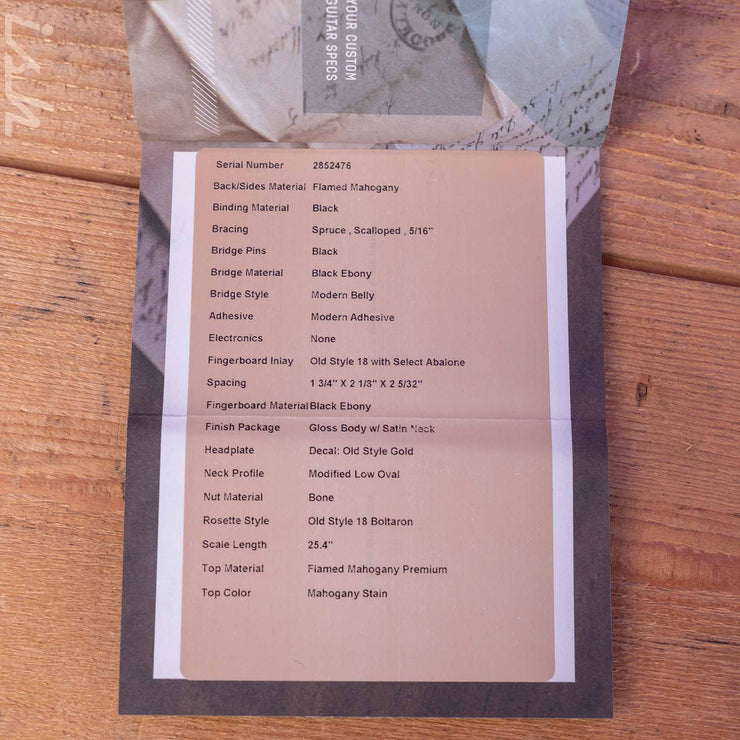 YOUR CUSTOM
GUITAR SPECS
Serial Number 2852476
Back/Sides Material Flamed Mahogany
Binding Material Black
Bracing Spruce , Scalloped , 5/16"
Bridge Pins Black
Bridge Material Black Ebony
Bridge Style Modern Belly
Adhesive Modern Adhesive
Electronics None
Fingerboard Inlay Old Style 18 with Select Abalone
Spacing 1 3/4" X 2 1/8" X 2 5/32"
Fingerboard Material Black Ebony
Finish Package Gloss Body w/ Satin Neck
Headplate Decal: Old Style Gold
Neck Profile Modified Low Oval
Nut Material Bone
Rosette Style Old Style 18 Boltaron
Scale Length 25.4"
Top Material Flamed Mahogany Premium
Top Color Mahogany Stain